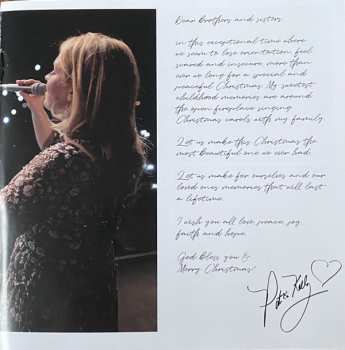 Dear Brothers and sisters
in this exceptional time where
we seem to lose orientation, feel
scared and insecure, more than
ever we long for a special and
peaceful Christmas. My sweetest
childhood memories are around
the open fireplace singing
Christmas carols with my family.
Let us make this Christmas the
most beautiful one we ever had.
Let us make for ourselves and our
loved ones memories that will last
a lifetime.
I wish you all love, peace, joy,
faith and hope.
God bless you &
Merry Christmas!
Kelly